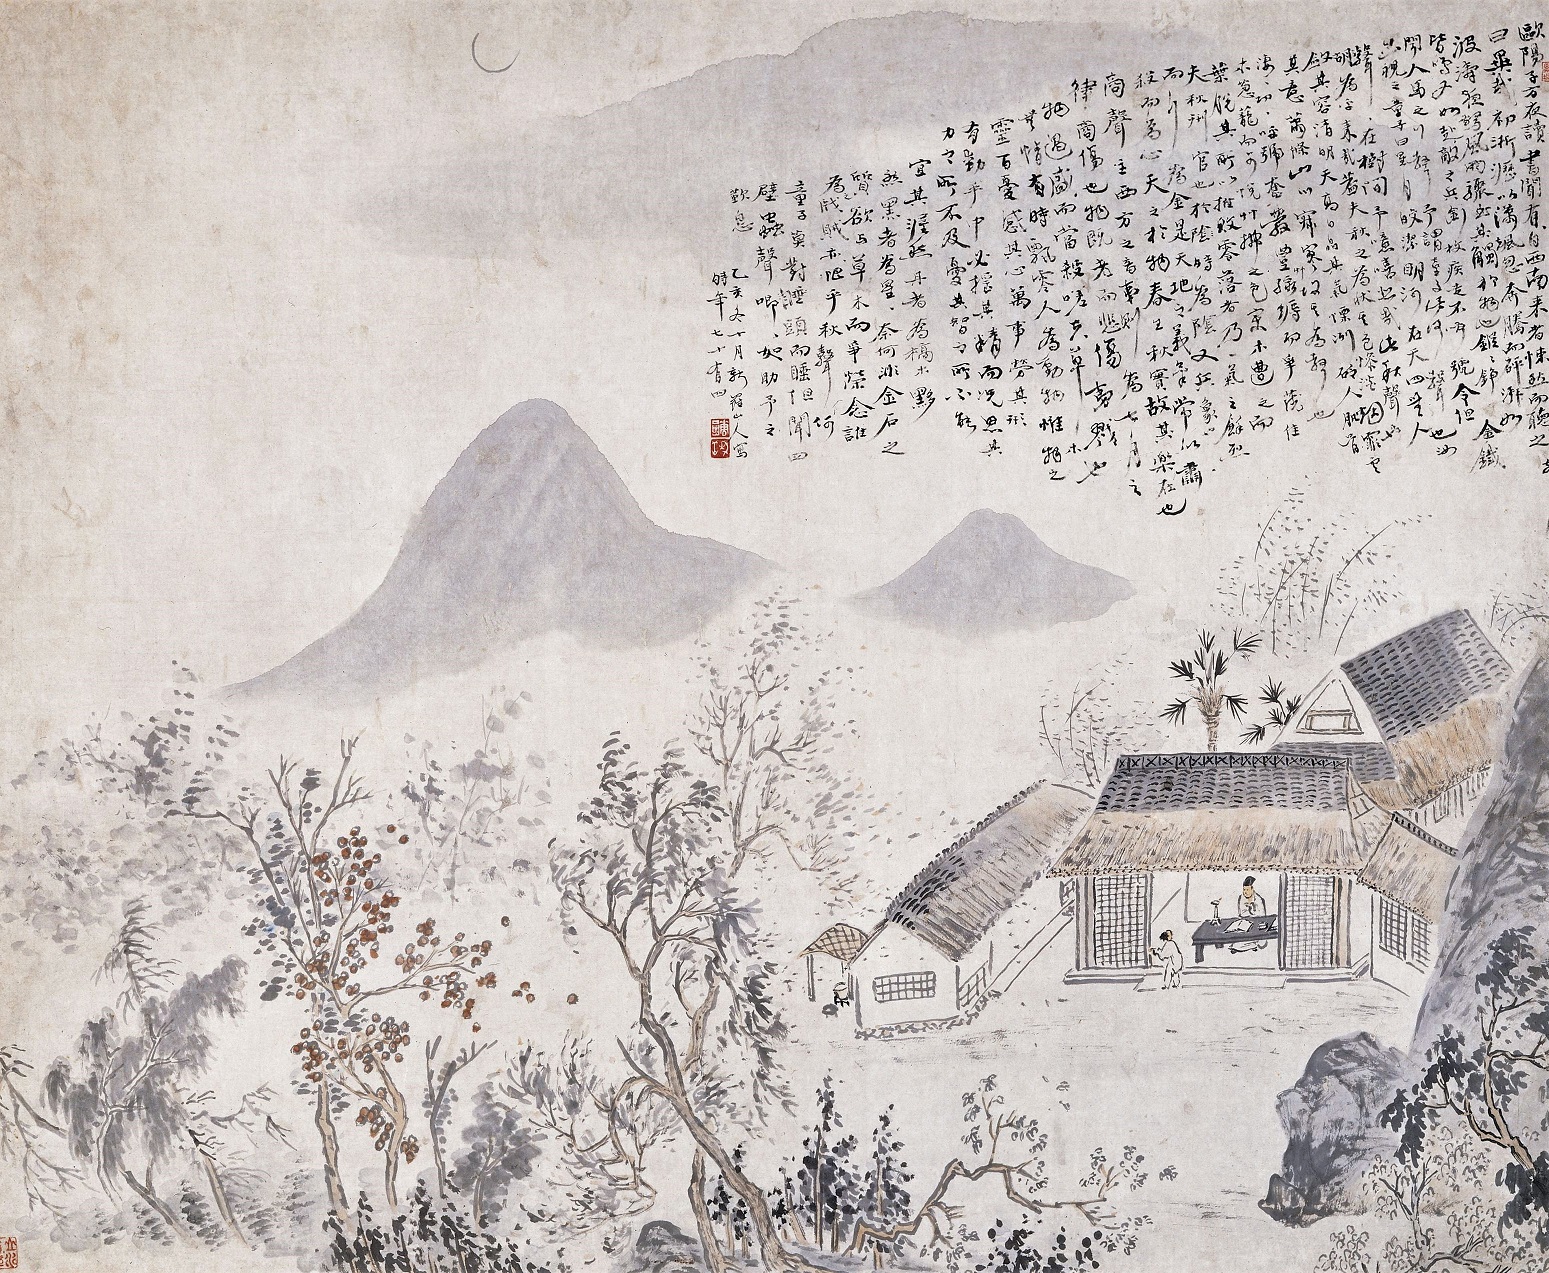 歐陽子方夜讀書聞有自西南來者悚然而聽之
曰異哉初淅瀝以瀟颯忽奔騰而砰湃如
波濤夜驚風雨驟至其觸於物也鏦〻錚〻金鐵
皆鳴又如赴敵之兵銜枚疾走不聞號令但
聞人馬之行聲予謂童子此何聲也汝
出視之童子曰星月皎潔明河在天四無人
聲〻在樹間予曰噫嘻悲哉此秋聲也
胡為乎來哉蓋夫秋之為狀其色慘淡烟霏雲
斂其容清明天高日晶其氣慄冽砭人肌骨
其意蕭條山川寂寥故其為聲也
淒〻切〻呼號奮發豐草綠縟而爭茂佳
木蔥蘢而可悅草拂之色變木遭之而
葉脫其所以摧敗零落者乃一氣之餘烈
夫秋刑官也於時為陰又兵象也
而行為金是天地之義氣常以肅
殺而為心天之於物春生秋實故其樂在也
商聲主西方之音夷則為七月之
律商傷也物既老而悲傷夷戮也
物過盛而當殺嗟夫草木
無情有時飄零人為動物惟物之
靈百憂感其心萬事勞其形
有動乎中必搖其精而況思其
力之所不及憂其智之所不能
宜其渥然丹者為槁木黟
然黑者為星〻奈何非金石之
質欲與草木而爭榮念誰
為之戕賊亦恨乎秋聲何
童子莫對垂頭而睡但聞四
壁蟲聲唧〻如助予之
歎息
乙亥冬十月新羅山人寫
時年七十有四